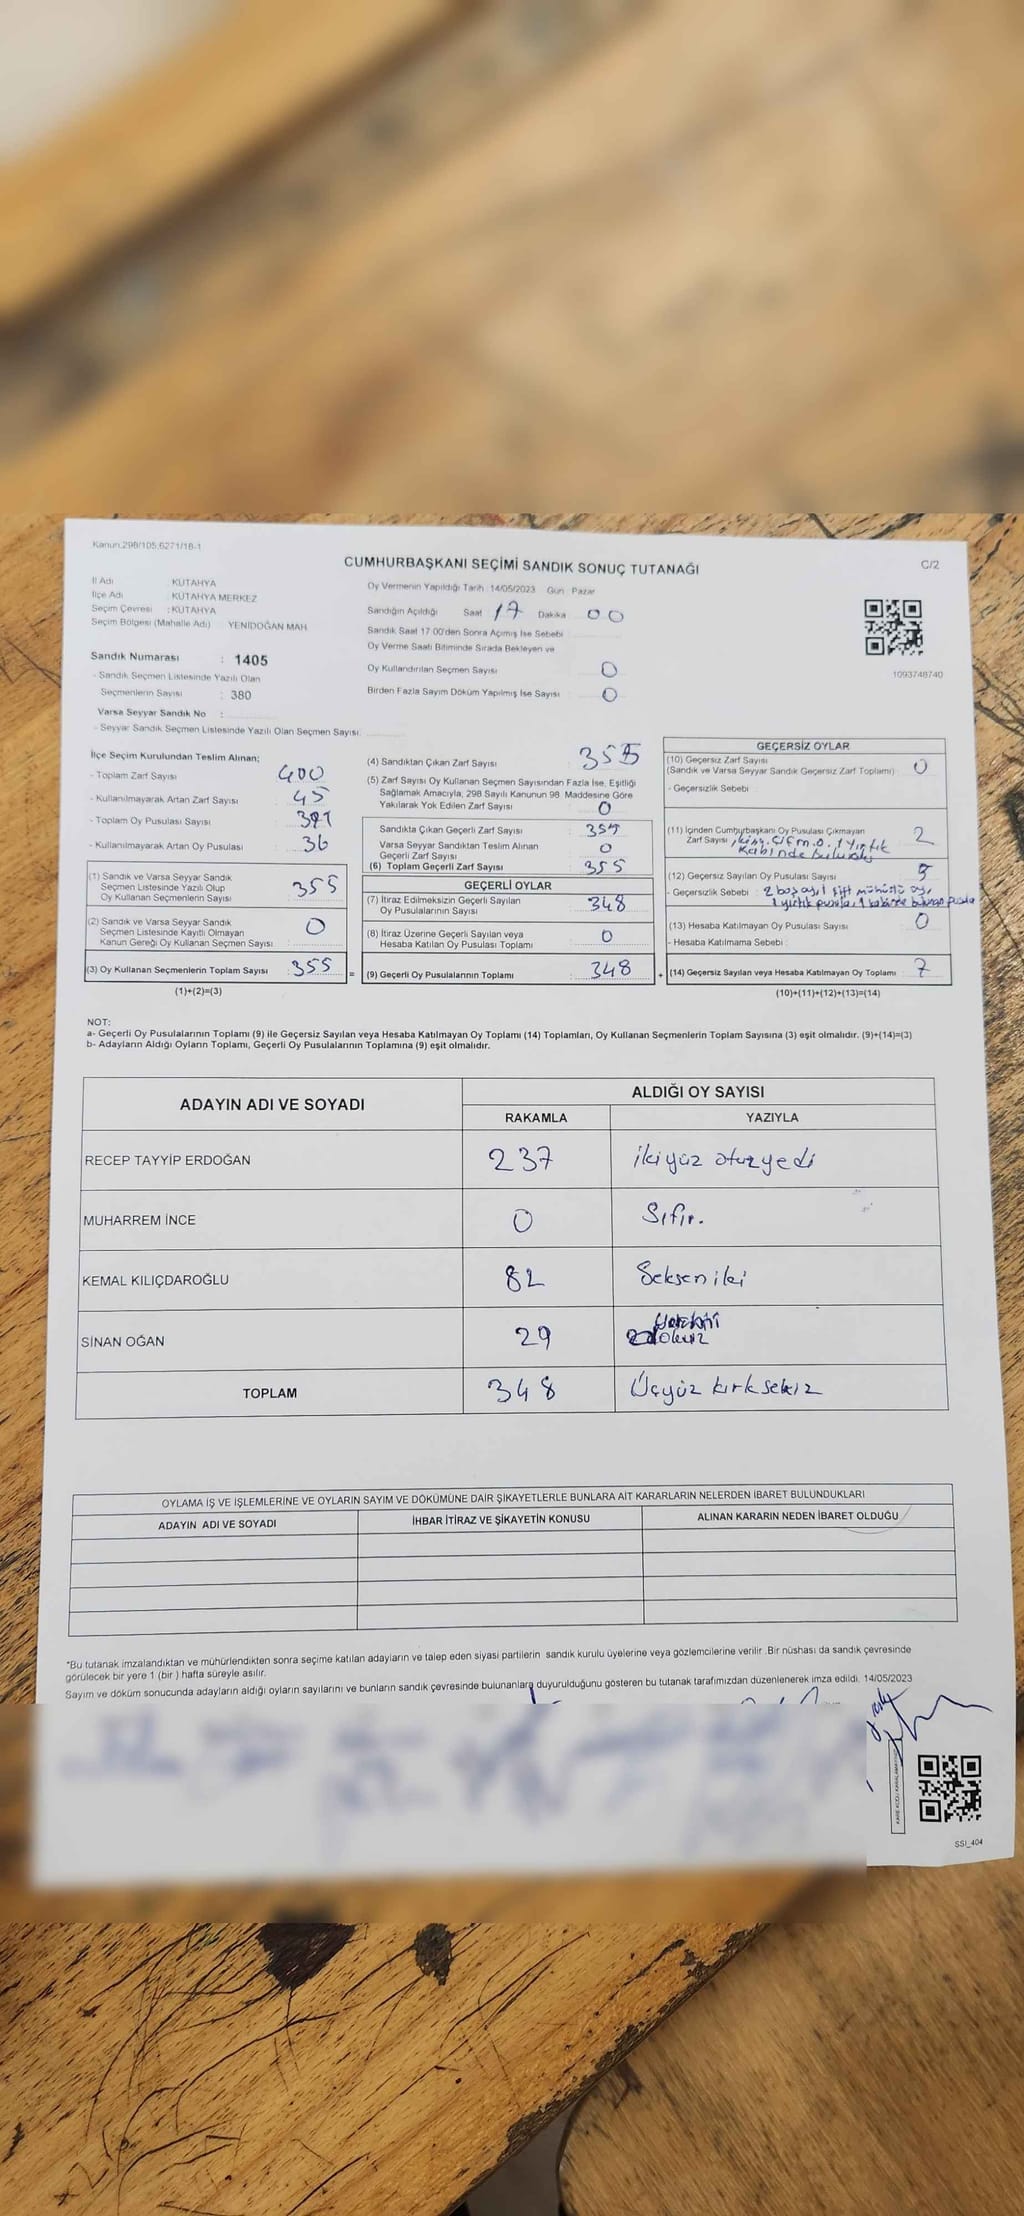 Kanun.298/105,6271/18-1
CUMHURBAŞKANI SEÇİMİ SANDIK SONUÇ TUTANAĞI
C/2
İl Adı : KÜTAHYA
İlçe Adı : KÜTAHYA MERKEZ
Seçim Çevresi : KÜTAHYA
Seçim Bölgesi (Mahalle Adı) : YENİDOĞAN MAH.
Sandık Numarası : 1405
- Sandık Seçmen Listesinde Yazılı Olan
Seçmenlerin Sayısı : 380
Varsa Seyyar Sandık No :
- Seyyar Sandık Seçmen Listesinde Yazılı Olan Seçmen Sayısı:
Oy Vermenin Yapıldığı Tarih : 14/05/2023 Gün : Pazar
Sandığın Açıldığı Saat 17 Dakika 00
Sandık Saat 17:00'den Sonra Açılmış İse Sebebi
Oy Verme Saati Bitiminde Sırada Bekleyen ve
Oy Kullandırılan Seçmen Sayısı 0
Birden Fazla Sayım Döküm Yapılmış İse Sayısı 0
1093748740
İlçe Seçim Kurulundan Teslim Alınan;
- Toplam Zarf Sayısı 400
- Kullanılmayarak Artan Zarf Sayısı 45
- Toplam Oy Pusulası Sayısı
- Kullanılmayarak Artan Oy Pusulası 36
(1) Sandık ve Varsa Seyyar Sandık
Seçmen Listesinde Yazılı Olup
Oy Kullanan Seçmenlerin Sayısı 355
(2) Sandık ve Varsa Seyyar Sandık
Seçmen Listesinde Kayıtlı Olmayan
Kanun Gereği Oy Kullanan Seçmen Sayısı 0
(3) Oy Kullanan Seçmenlerin Toplam Sayısı : 355 =
(1)+(2)=(3)
(4) Sandıktan Çıkan Zarf Sayısı 355
(5) Zarf Sayısı Oy Kullanan Seçmen Sayısından Fazla İse, Eşitliği
Sağlamak Amacıyla, 298 Sayılı Kanunun 98. Maddesine Göre
Yakılarak Yok Edilen Zarf Sayısı 0
Sandıkta Çıkan Geçerli Zarf Sayısı : 355
Varsa Seyyar Sandıktan Teslim Alınan
Geçerli Zarf Sayısı 0
(6) Toplam Geçerli Zarf Sayısı 355
GEÇERLİ OYLAR
(7) İtiraz Edilmeksizin Geçerli Sayılan
Oy Pusulalarının Sayısı 348
(8) İtiraz Üzerine Geçerli Sayılan veya
Hesaba Katılan Oy Pusulası Toplamı 0
(9) Geçerli Oy Pusulalarının Toplamı : 348 +
GEÇERSİZ OYLAR
(10) Geçersiz Zarf Sayısı
(Sandık ve Varsa Seyyar Sandık Geçersiz Zarf Toplamı) 0
- Geçersizlik Sebebi :
(11) İçinden Cumhurbaşkanı Oy Pusulası Çıkmayan
Zarf Sayısı 1 yırtık 2
kabinde
(12) Geçersiz Sayılan Oy Pusulası Sayısı 5
- Geçersizlik Sebebi : 2 boş oy, 1 çift mühürlü oy,
1 yırtık pusula, 1 kabinde bulunan pusula
(13) Hesaba Katılmayan Oy Sayısı 0
- Hesaba Katılmama Sebebi :
(14) Geçersiz Sayılan veya Hesaba Katılmayan Oy Toplamı 7
(10)+(11)+(12)+(13)=(14)
NOT:
a- Geçerli Oy Pusulalarının Toplamı (9) ile Geçersiz Sayılan veya Hesaba Katılmayan Oy Toplamı (14) Toplamları, Oy Kullanan Seçmenlerin Toplam Sayısına (3) eşit olmalıdır. (9)+(14)=(3)
b- Adayların Aldığı Oyların Toplamı, Geçerli Oy Pusulalarının Toplamına (9) eşit olmalıdır.
ADAYIN ADI VE SOYADI
ALDIĞI OY SAYISI
RAKAMLA YAZIYLA
RECEP TAYYİP ERDOĞAN 237 ikiyüz otuzyedi
MUHARREM İNCE 0 Sıfır.
KEMAL KILIÇDAROĞLU 82 Seksen iki
SİNAN OĞAN 29
TOPLAM 348 Üçyüz kırksekiz
OYLAMA İŞ VE İŞLEMLERİNE VE OYLARIN SAYIM VE DÖKÜMÜNE DAİR ŞİKAYETLERLE BUNLARA AİT KARARLARIN NELERDEN İBARET BULUNDUKLARI
ADAYIN ADI VE SOYADI İHBAR İTİRAZ VE ŞİKAYETİN KONUSU ALINAN KARARIN NEDEN İBARET OLDUĞU
*Bu tutanak imzalandıktan ve mühürlendikten sonra seçime katılan adayların ve talep eden siyasi partilerin sandık kurulu üyelerine veya gözlemcilerine verilir .Bir nüshası da sandık çevresinde
görülecek bir yere 1 (bir ) hafta süreyle asılır.
Sayım ve döküm sonucunda adayların aldığı oyların sayılarını ve bunların sandık çevresinde bulunanlara duyurulduğunu gösteren bu tutanak tarafımızdan düzenlenerek imza edildi. 14/05/2023
SSI_404